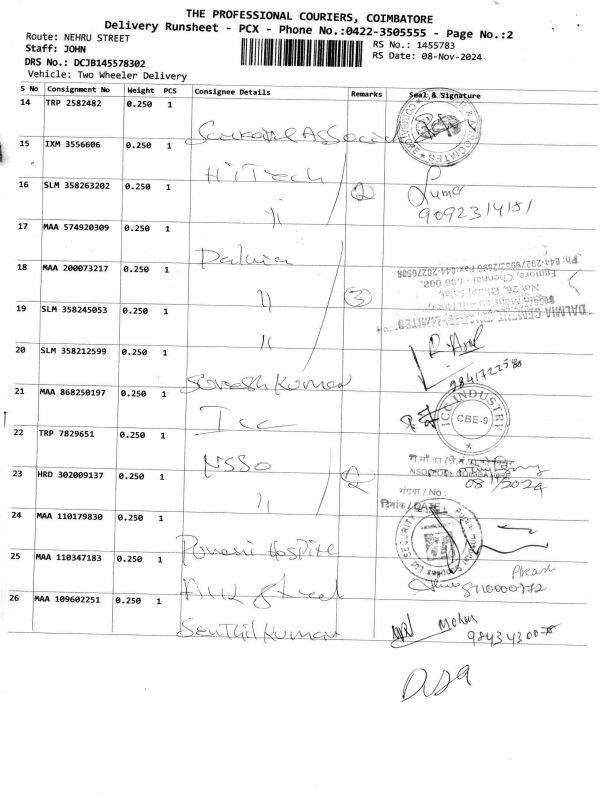 THE PROFESSIONAL COURIERS, COIMBATORE
Delivery Runsheet - PCX - Phone No.:0422-3505555 - Page No.:2
Route: NEHRU STREET
RS No.: 1455783
Staff: JOHN
RS Date: 08-Nov-2024
DRS No.: DCJB145578302
Vehicle: Two Wheeler Delivery
S No Consignment No Weight PCS Consignee Details Remarks Seal & Signature
14 TRP 2582482 0.250 1
15 IXM 3556606 0.250 1 HiTech
16 SLM 358263202 0.250 1 11 2
9092314151
17 MAA 574920309 0.250 1 Dalmia
18 MAA 200073217 0.250 1 11 3
Ph: 044-
Egmore, Chennai - 600 008.
DALMIA CEMENT LIMITED
19 SLM 358245053 0.250 1 11
20 SLM 358212599 0.250 1 Suresh Kumar
21 MAA 868250197 0.250 1 Icc
ICC INDUSTRY
CBE-9
22 TRP 7829651 0.250 1 NSSO
23 HRD 302009137 0.250 1 11 2
08/11/2024
/ No :
दिनांक / DATE :
24 MAA 110179830 0.250 1
SECURITY
25 MAA 110347183 0.250 1
Akash
8110000772
26 MAA 109602251 0.250 1 Senthil Kumar
Mohan